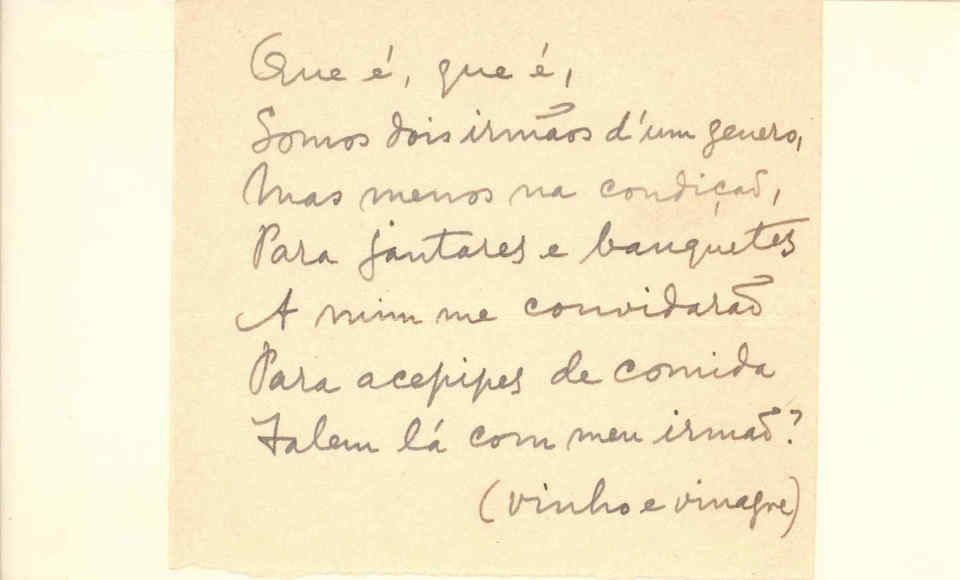 Que é, que é,
Somos dois irmãos d'um genero,
Mas menos na condição,
Para jantares e banquetes
A mim me convidarão
Para acepipes de comida
Falem lá com meu irmão?
(vinho e vinagre)